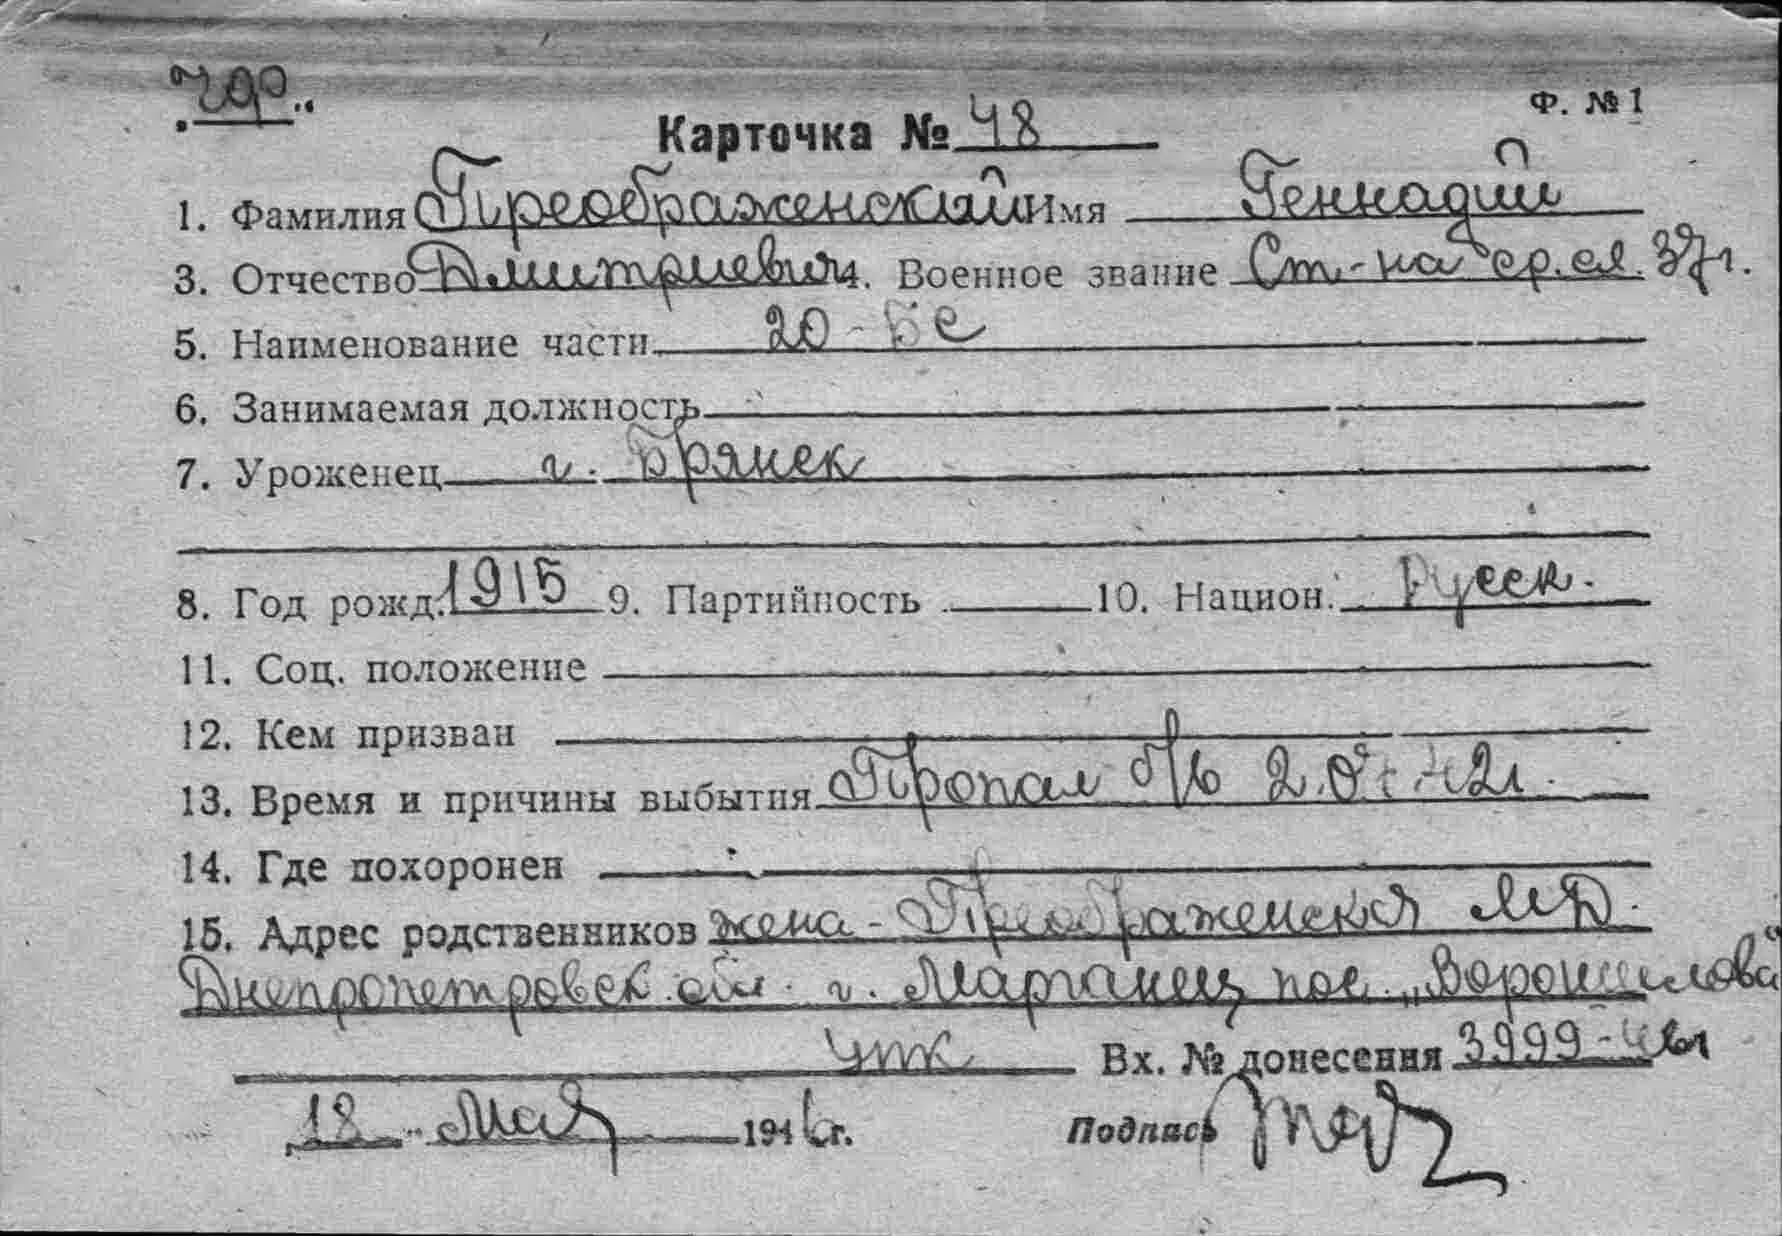 Ф. № 1
Карточка № 48
1. Фамилия Преображенский Имя Геннадий
3. Отчество Дмитриевич 4. Военное звание Ст-на ср.сл. 37г.
5. Наименование части 20-БС
6. Занимаемая должность
7. Уроженец г. Брянск
8. Год рожд. 1915 9. Партийность 10. Национ. Русск.
11. Соц. положение
12. Кем призван
13. Время и причины выбытия Пропал б/в 2.07.42г.
14. Где похоронен
15. Адрес родственников жена - Преображенская М.Д.
Днепропетровск. обл. г. Марганец пос. "Ворошилова"
Вх. № донесения 3999-46г
18 Мая 1946г. Подпись